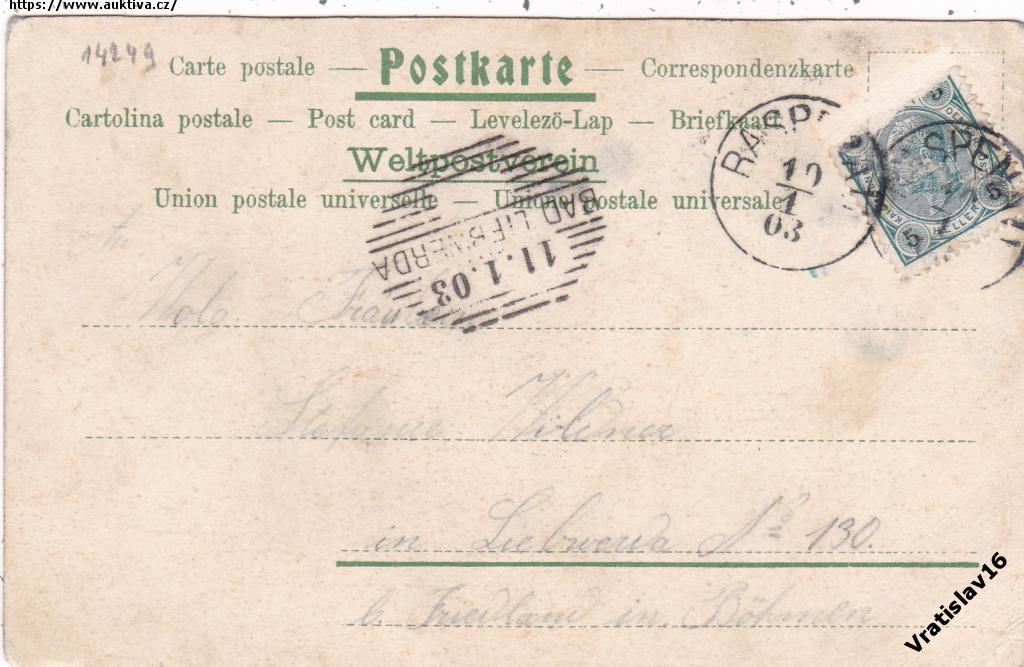 https://www.auktiva.cz/
14249
Carte postale — Postkarte — Correspondenzkarte
Cartolina postale — Post card — Levelező-Lap — Briefkaart
Weltpostverein
Union postale universelle — Unione postale universale
RASPE
10
1
03
BAD LIEBWERDA
11.1.03
5
HELLER
5
Wolg. Fräulein
Stefanie Wildner
in Liebwerda No 130.
b. Friedland in Böhmen
Vratislav16